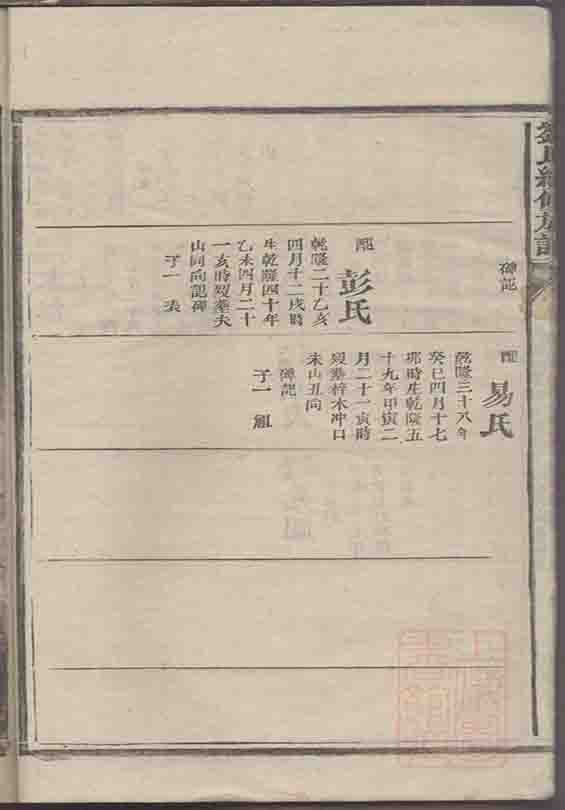 氏續修族譜
碑記
配
彭氏
乾隆二十乙亥
四月十二戌時
生乾隆四十年
乙未四月二十
一亥時歿葬夫
山同向記碑
子一
配
易氏
乾隆三十八年
癸巳四月十七
卯時生乾隆五
十九年甲寅二
月二十一寅時
歿葬梓木冲口
未山丑向
碑記
子一